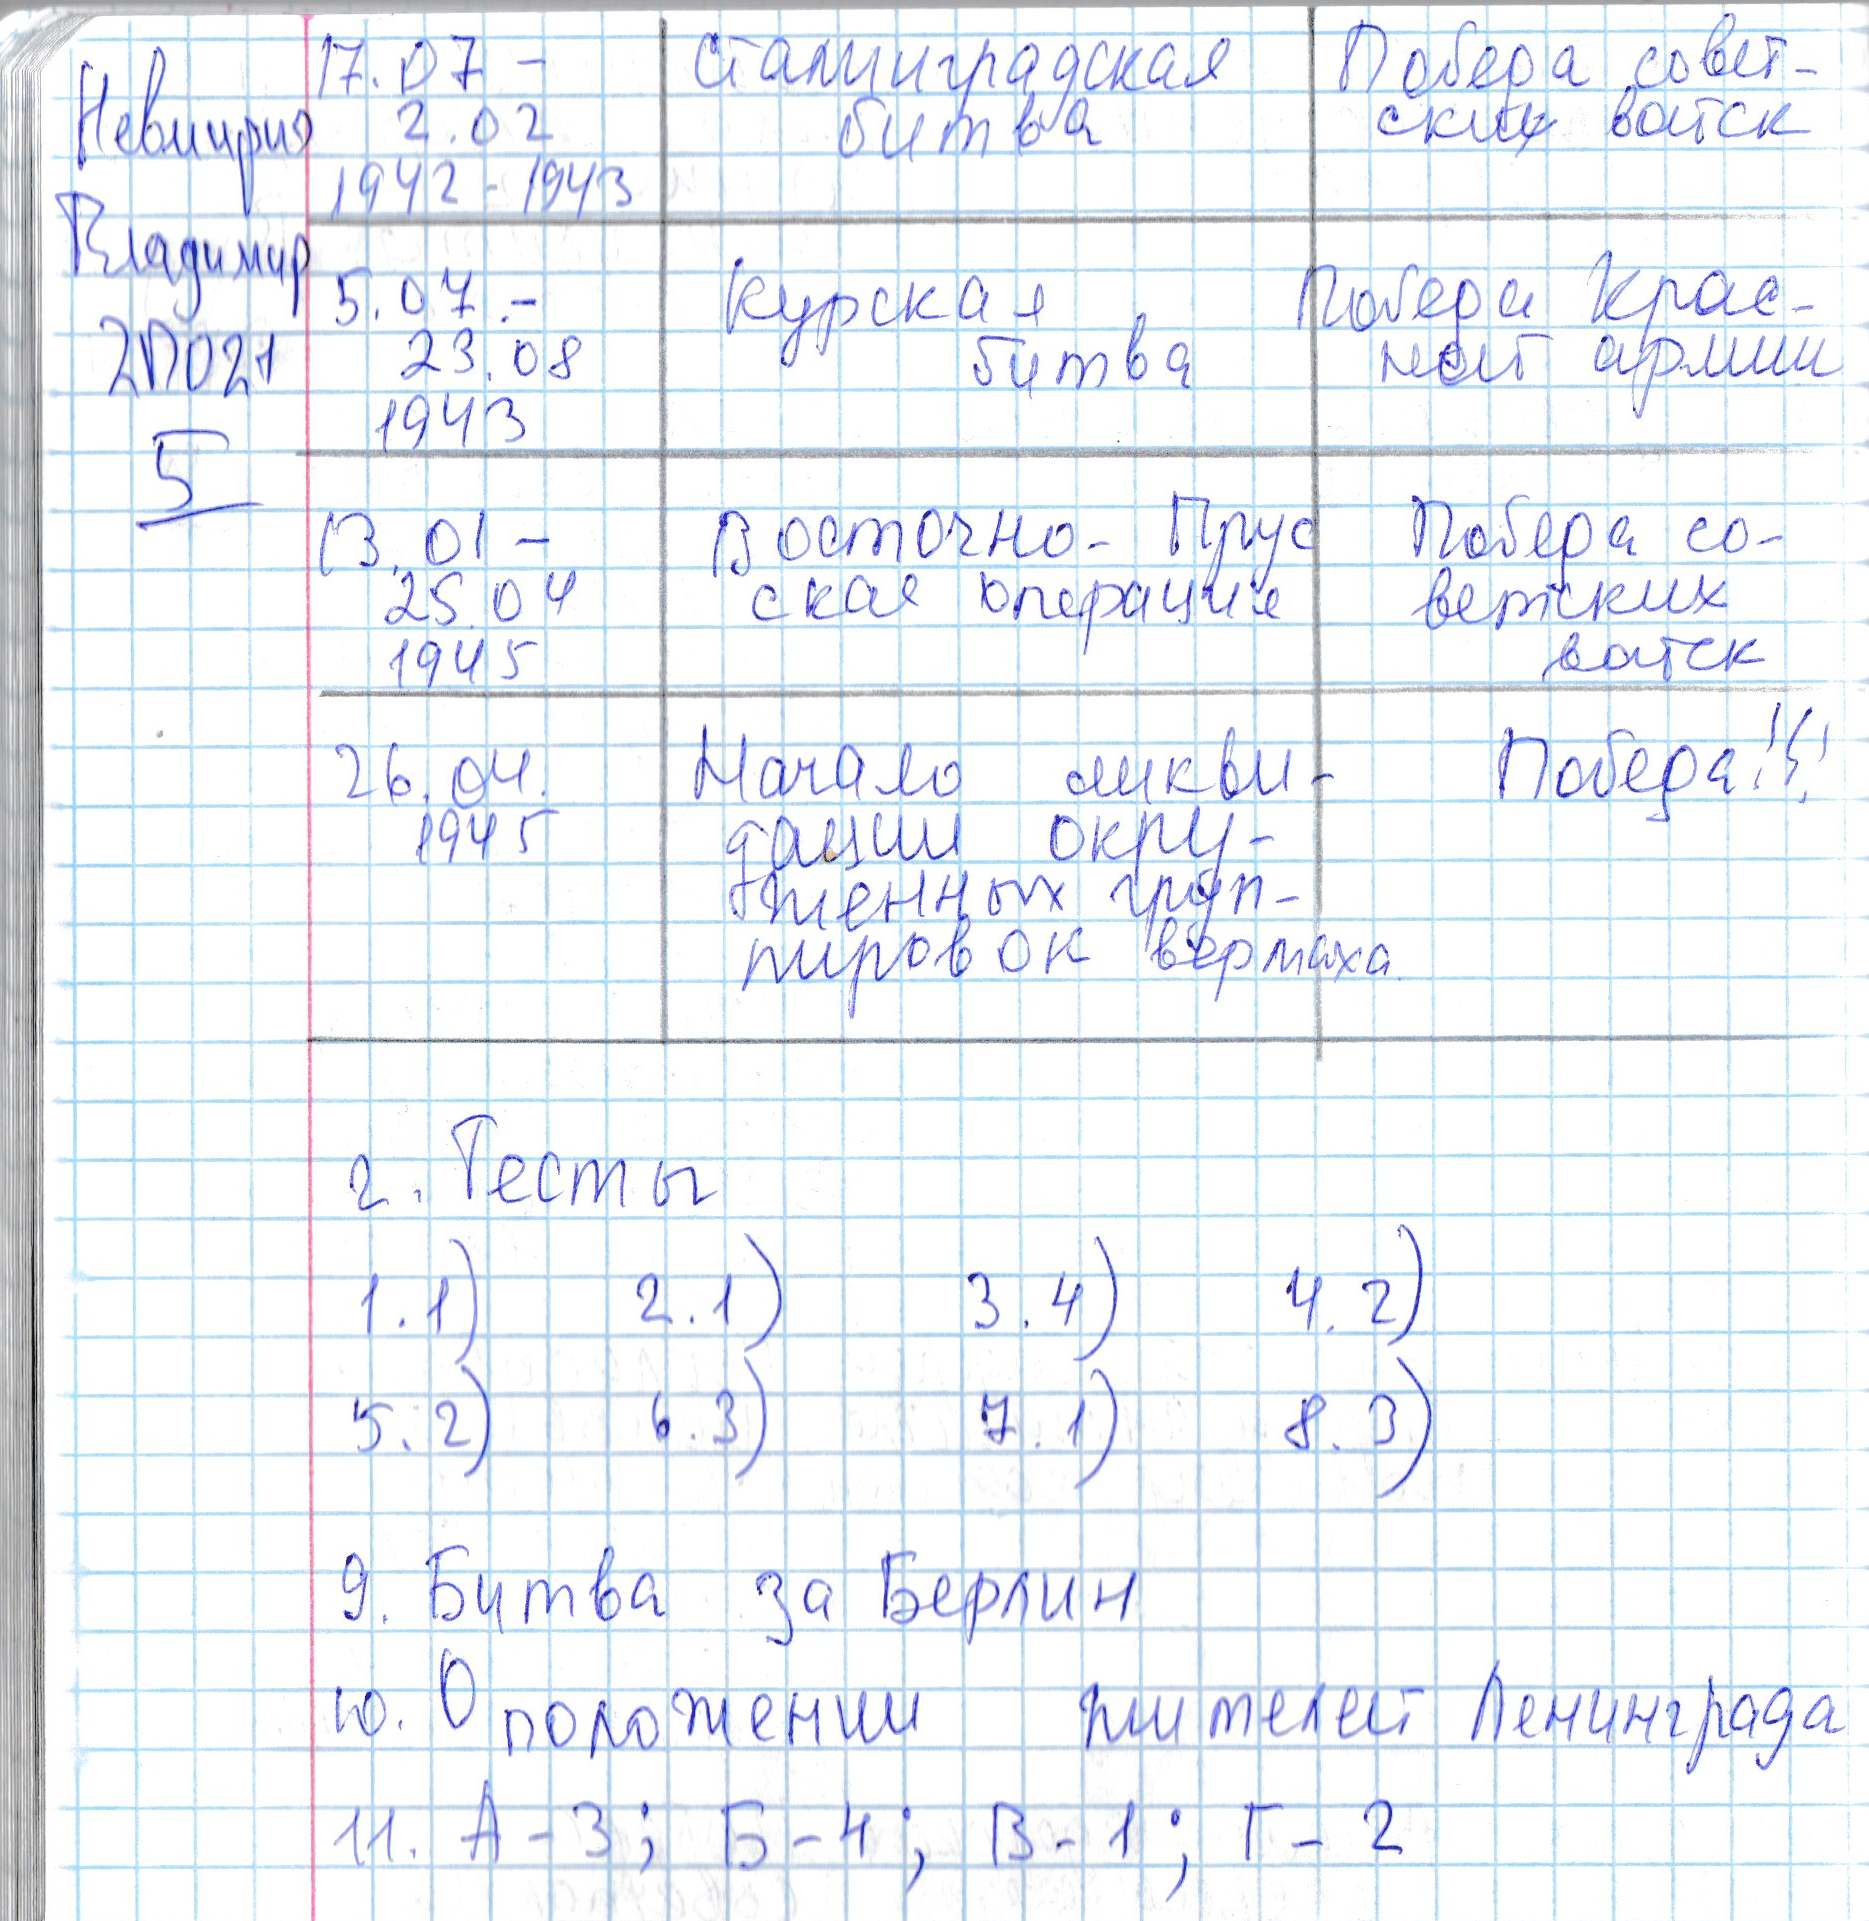 Невищрия
Владимир
2П021
5
17.07 -
2.02
1942 - 1943
Сталинградская
битва
Победа совет-
ских войск
5.07.-
23.08
1943
Курская
битва
Победа Крас-
ной армии
13.01 -
25.04
1945
Восточно- Прус
ская операция
Победа со-
ветских
войск
26.04.
1945
Начало ликви-
дации окру-
женных груп-
пировок вермаха
Победа!!!
2. Тесты
1.1) 2.1) 3.4) 4.2)
5.2) 6.3) 7.1) 8.3)
9. Битва за Берлин
10. О положении жителей Ленинграда
11. А-3; Б-4; В-1; Г-2